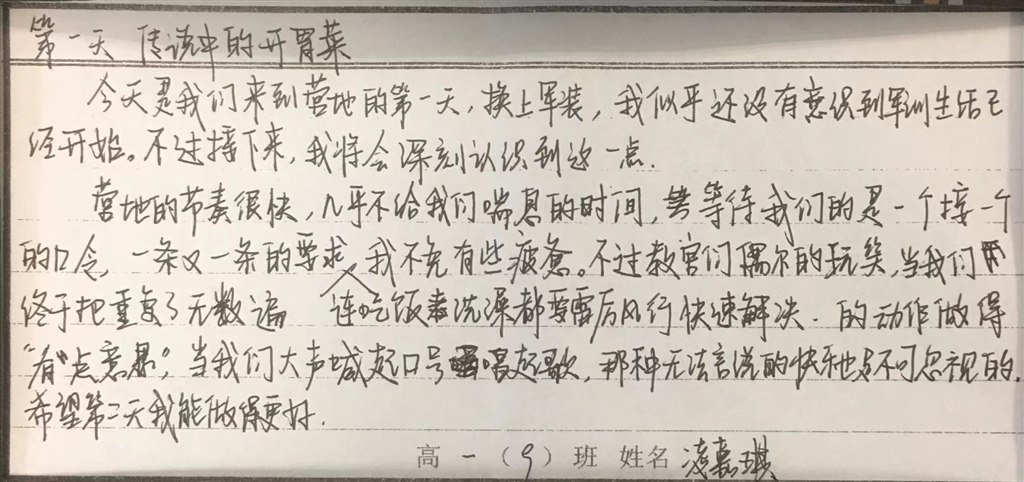 第一天 传说中的开胃菜
今天是我们来到营地的第一天，换上军装，我似乎还没有意识到军训生活已
经开始。不过接下来，我将会深刻认识到这一点.
营地的节奏很快，几乎不给我们喘息的时间，等待我们的是一个接一个
的口令，一条又一条的要求 我不免有些疲惫。不过教官们偶尔的玩笑，当我们
终于把重复了无数遍 连吃饭洗澡都要雷厉风行快速解决. 的动作做得
“有”点意思”，当我们大声喊起口号唱起歌，那种无法言说的快乐也是不可忽视的.
希望第二天我能做得更好.
高一（9）班 姓名 凌嘉琪